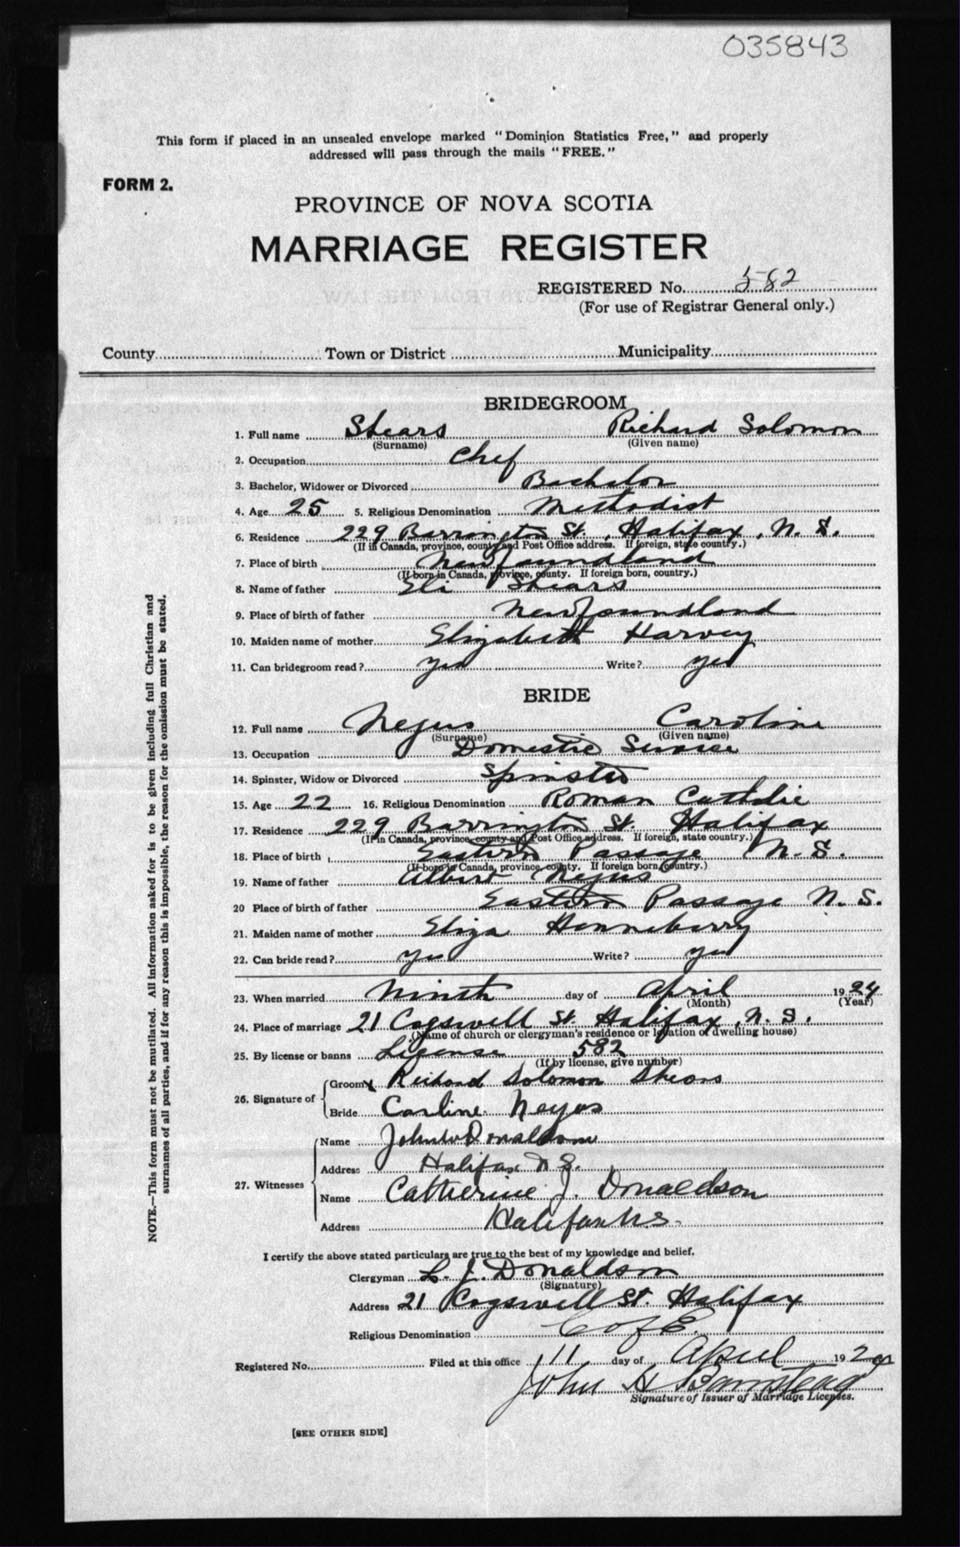 035843
This form if placed in an unsealed envelope marked "Dominion Statistics Free," and properly
addressed will pass through the mails "FREE."
FORM 2.
PROVINCE OF NOVA SCOTIA
MARRIAGE REGISTER
REGISTERED No. 582
(For use of Registrar General only.)
County Town or District Municipality
BRIDEGROOM
1. Full name Shears Richard Solomon
(Surname) (Given name)
2. Occupation Chef
3. Bachelor, Widower or Divorced Bachelor
4. Age 25 5. Religious Denomination Methodist
6. Residence 229 Barrington St, Halifax, N.S.
(If in Canada, province, county and Post Office address. If foreign, state country.)
7. Place of birth Newfoundland
(If born in Canada, province, county. If foreign born, country.)
8. Name of father Eli Shears
9. Place of birth of father Newfoundland
10. Maiden name of mother Elizabeth Harvey
11. Can bridegroom read? yes Write? yes
BRIDE
12. Full name Nejus Caroline
(Surname) (Given name)
13. Occupation Domestic Service
14. Spinster, Widow or Divorced Spinster
15. Age 22 16. Religious Denomination Roman Catholic
17. Residence 229 Barrington St. Halifax
(If in Canada, province, county and Post Office address. If foreign, state country.)
18. Place of birth Eastern Passage N.S.
(If born in Canada, province, county. If foreign born, country.)
19. Name of father Albert Nejus
20 Place of birth of father Eastern Passage N.S.
21. Maiden name of mother Eliza Henneberry
22. Can bride read? yes Write? yes
23. When married Ninth day of April 1924
(Month) (Year)
24. Place of marriage 21 Cogswell St. Halifax, N.S.
(Name of church or clergyman's residence or location of dwelling house)
25. By license or banns License 582
(If by license, give number)
26. Signature of Groom X Richard Solomon Shears
Bride Carline Neyus
27. Witnesses Name John Donaldson
Address Halifax N.S.
Name Catherine J. Donaldson
Address Halifax N.S.
I certify the above stated particulars are true to the best of my knowledge and belief.
Clergyman L. J. Donaldson
(Signature)
Address 21 Cogswell St. Halifax
Religious Denomination C of E.
Registered No. Filed at this office 11 day of April 192
John H Barnstead
Signature of Issuer of Marriage Licenses.
[SEE OTHER SIDE]
NOTE.—This form must not be mutilated. All information asked for is to be given including full Christian and
surnames of all parties, and if for any reason this is impossible, the reason for the omission must be stated.